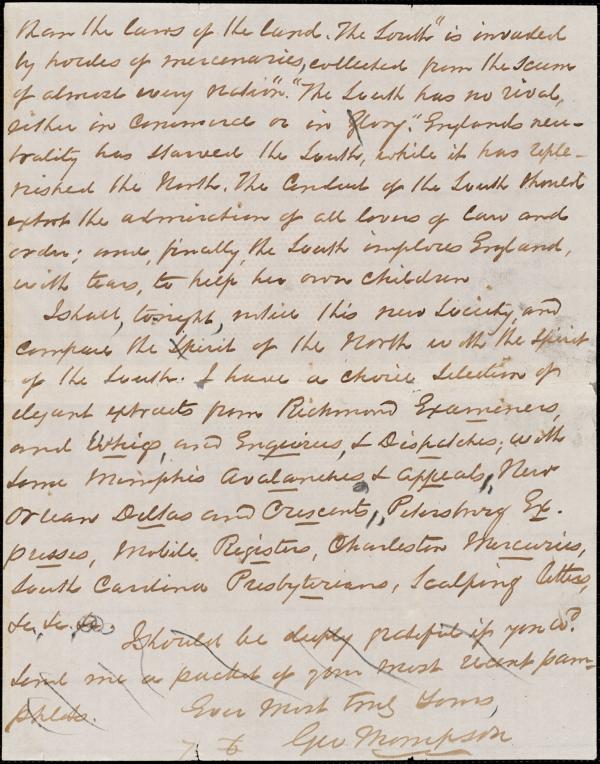 than the laws of the land. The South" is invaded
by hordes of mercenaries, collected from the scum
of almost every nation". "The South has no rival,
either in commerce or in glory." Englands neu-
trality has starved the South, while it has reple-
nished the North. The conduct of the South should
extort the admiration of all lovers of law and
order; and, finally, the South implores England,
with tears, to help her own children
I shall, tonight, notice this new Society, and
compare the spirit of the North with the spirit
of the South. I have a choice selection of
elegant extracts from Richmond Examiners
and Whigs, and Enquirers, & Dispatches; with
some Memphis Avalanches & Appeals, New
Orlean Deltas and Crescents, Petersburg Ex-
presses, Mobile Registers, Charleston Mercuries,
South Carolina Presbyterians, Scalping
&c, &c. &c.
I should be deeply grateful if you wd.
send me a packet of your most recent pam-
phlets.
Ever most truly Yours,
Geo Thompson